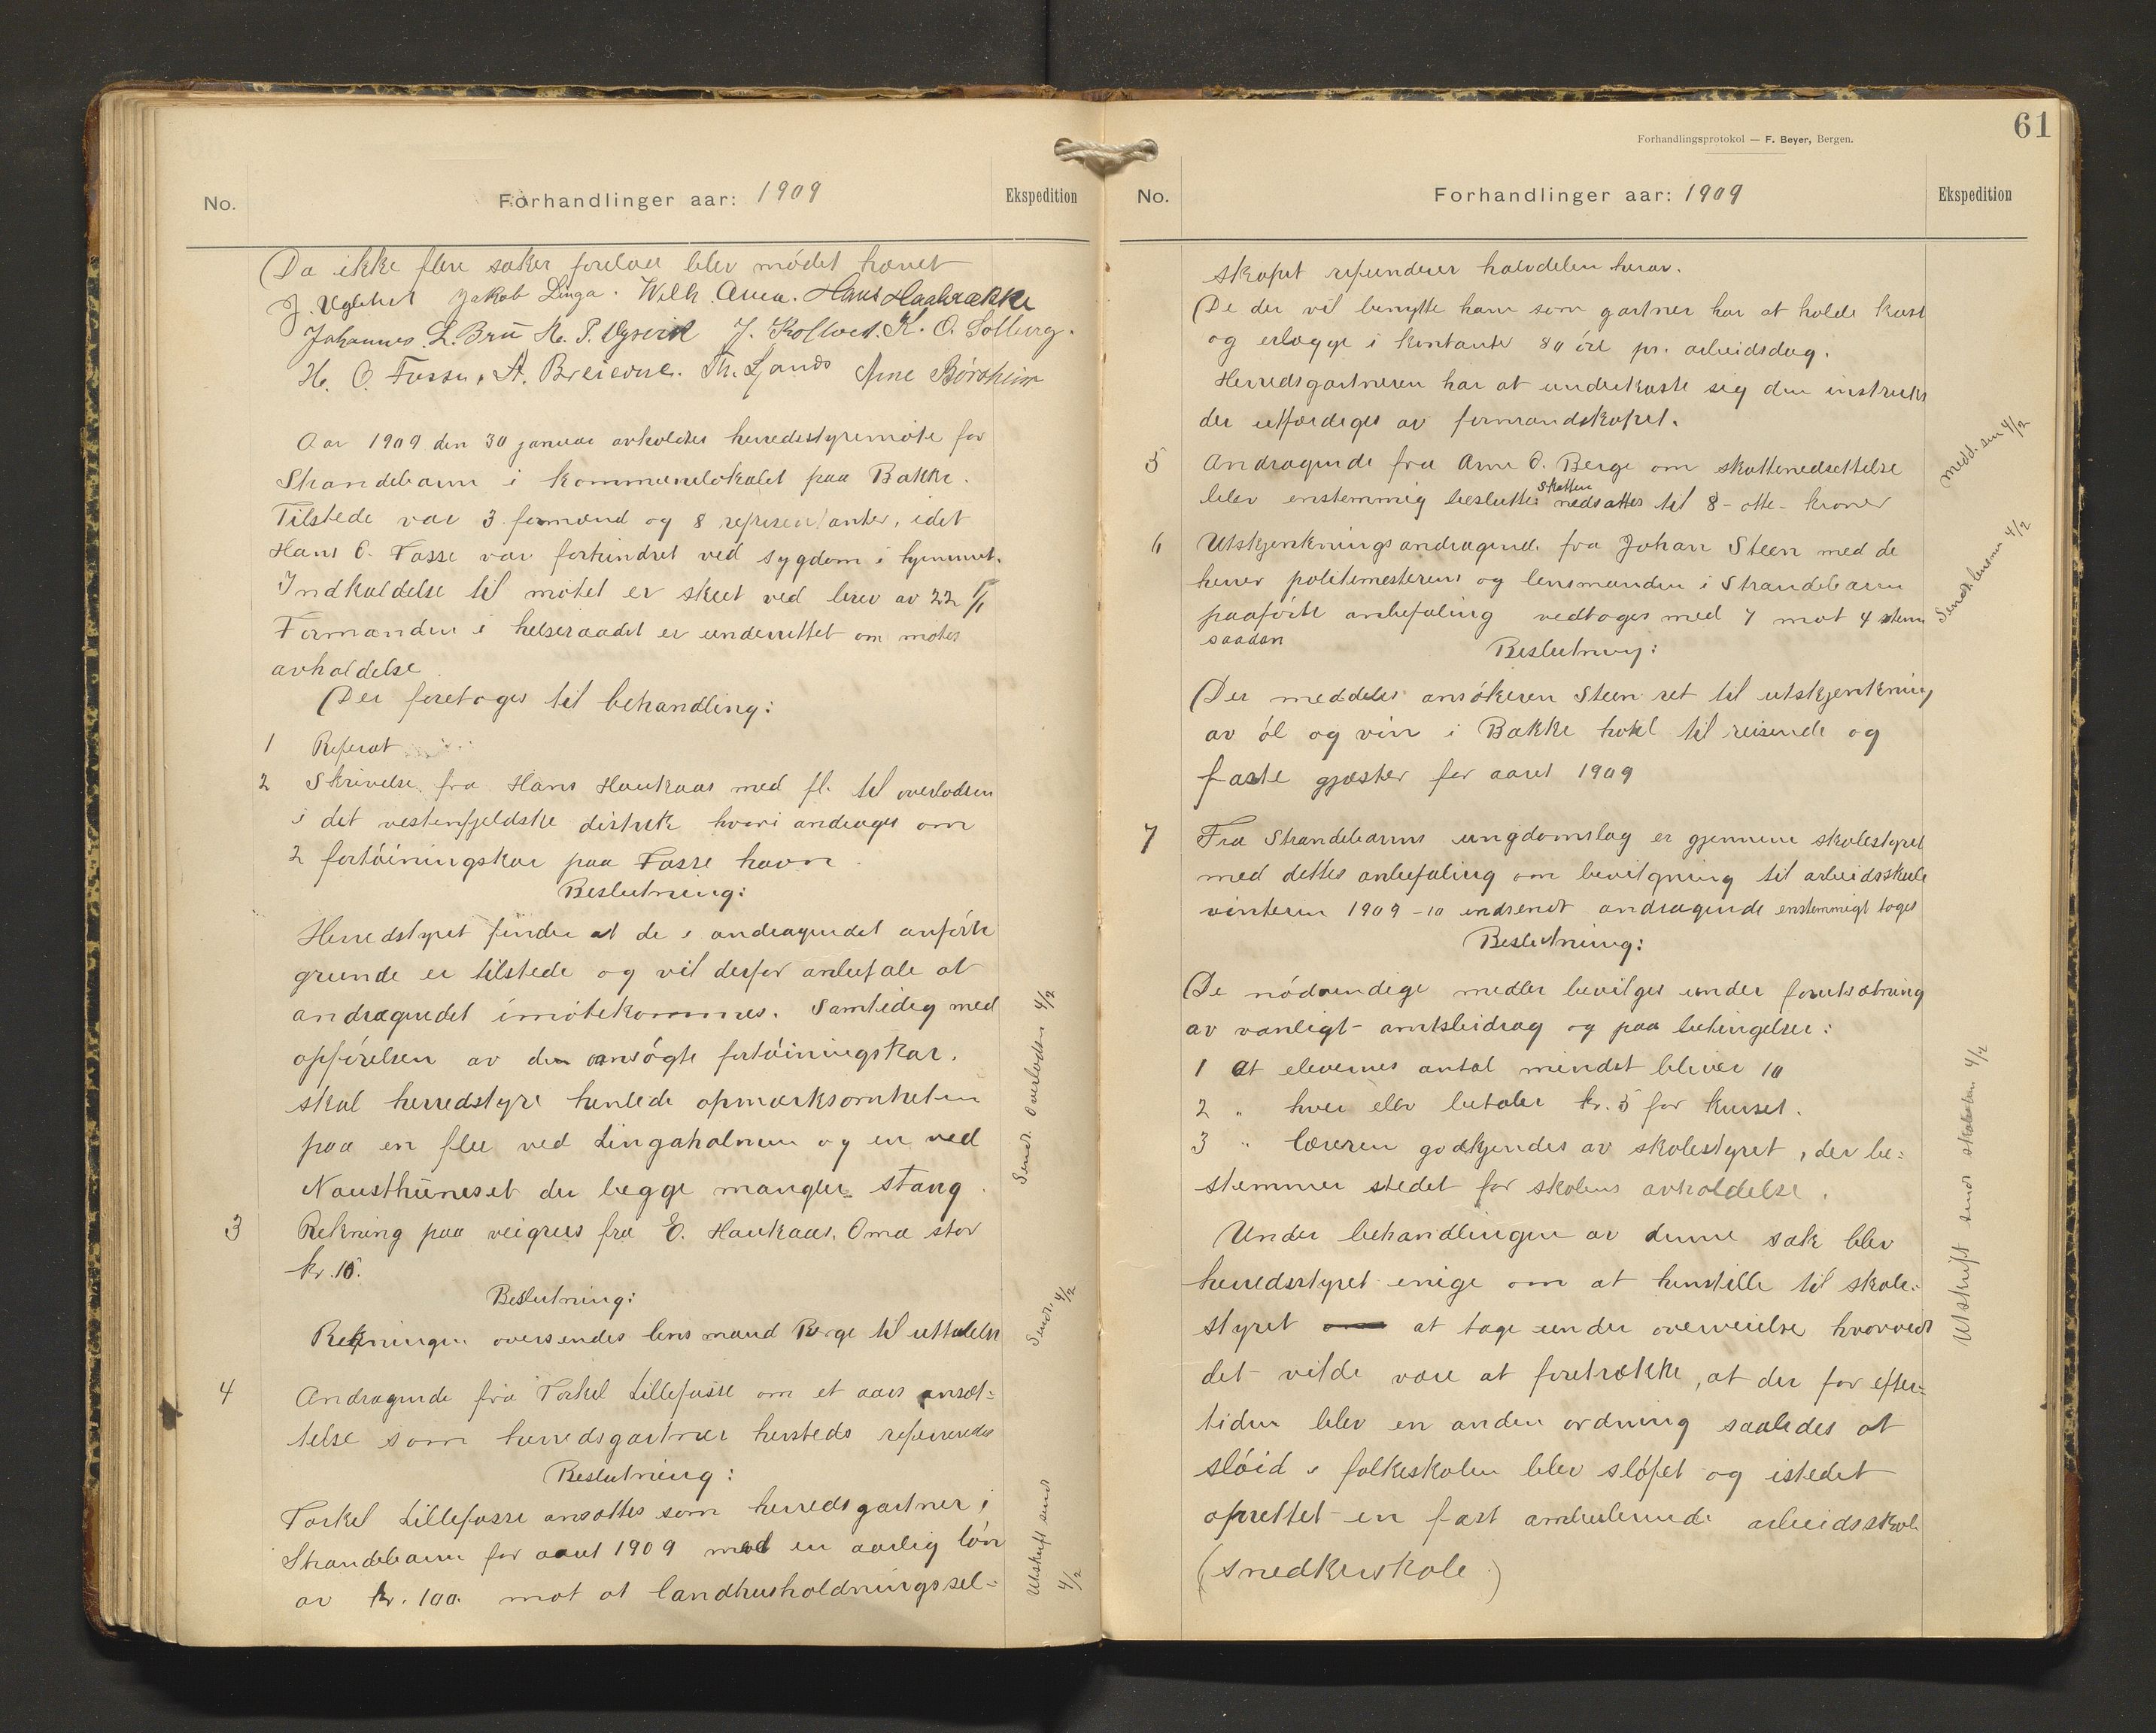 No.
Forhandlinger aar: 1909
Ekspedition
Da ikke flere saker forelaa blev mødet hævet
Jakob Linga. Wilh. Hans Haabrække
Johannes L. Brü J. Kolltveit. K. O. Solberg.
H. O. Fosse, A. Breievne. Th. Arne Børsheim
Aar 1909 den 30 januar avholdtes herredsstyremøte for
Strandebarm i kommunelokalet paa Bakke.
Tilstede var 3 formænd og 8 representanter, idet
Hans O. Fosse var forhindret ved sygdom i hjemmet.
Indkaldelse til møtet er skeet ved brev av 22/1
Formanden i helseraadet er underrettet om møtes
avholdelse.
Der foretoges til behandling:
1 Referat
2 Skrivelse fra Hans Haukaas med fl. til overlodsen
i det vestenfjeldske distrikt hvori andrages om
2 fortøiningskar paa Fosse havn.
Beslutning:
Herredstyret finder at de i andragendet anførte
grunde er tilstede og vil derfor anbefale at
andragendet imøtekommes. Samtidig med
opførelsen av de ansøgte fortøiningskar.
skal herredstyre henlede opmerksomheten
paa en flu ved Lingaholmen og en ved
Nausthüneset der begge mangler stang.
Sendt Overlodsen 4/2
3 Rekning paa veigrus fra E. Haukaas, Oma stor
kr. 15.
Beslutning:
Rekningen oversendes lensmand Berge til uttalelse
Sendt. 4/2
4 Andragende fra Torkel Lillefosse om et aars ansæt-
telse som herredsgartner hersteds refereredes
Beslutning:
Torkel Lillefosse ansattes som herredsgartner i
Strandebarm for aaret 1909 med en aarlig løn
av kr. 100. mot at landhusholdningssel-
Utskrift sendt
4/2
Forhandlingsprotokol — F. Beyer, Bergen.
61
No.
Forhandlinger aar: 1909
Ekspedition
skapet refunderer halvdelen herav.
De der vil benytte ham som gartner har at holde kost
og erlægge i kontanter 80 øre pr. arbeidsdag.
Herredsgartneren har at underkaste sig den instruks
der utfærdiges av formandskapet.
5 Andragende fra Arne O. Berge om skattenedsettelse
skatten
blev enstemmig besluttet nedsattes til 8 - otte - kroner
medd. sen 4/2
6 Utskjenkningsandragende fra Johan Steen med de
herrer politimesterens og lensmanden i Strandebarm
paaførte anbefaling vedtoges med 7 mot 4 stem
saadan
Beslutning:
Sendt lensm 4/2
Der meddeles ansøkeren Steen ret til utskjenkning
av øl og vin i Bakke hotel til reisende og
faste gjæster for aaret 1909
7 Fra Strandebarms ungdomslag er gjennem skolestyret
med dettes anbefaling om bevilgning til arbeidsskole
vinteren 1909-10 indsendt andragende enstemmigt toges
Beslutning:
De nødvendige medler bevilges under forutsætning
av vanligt amtsbidrag og paa betingelser:
1 at elevernes antal mindst bliver 10
2 " hver elev betaler kr. 5 for kurset.
3 " læreren godkjendes av skolestyret, der be-
stemmer stedet for skolens avholdelse.
Under behandlingen av denne sak blev
herredsstyret enige om at henstille til skole-
styret at tage under overveielse hvorvidt
det vilde være at foretrække, at der for efter-
tiden blev en anden ordning saaledes at
sløid i folkeskolen blev sløfet og istedet
oprettet en fast ambulerende arbeidsskole
(snedkerskole)
Utskrift sendt skolestn 4/2